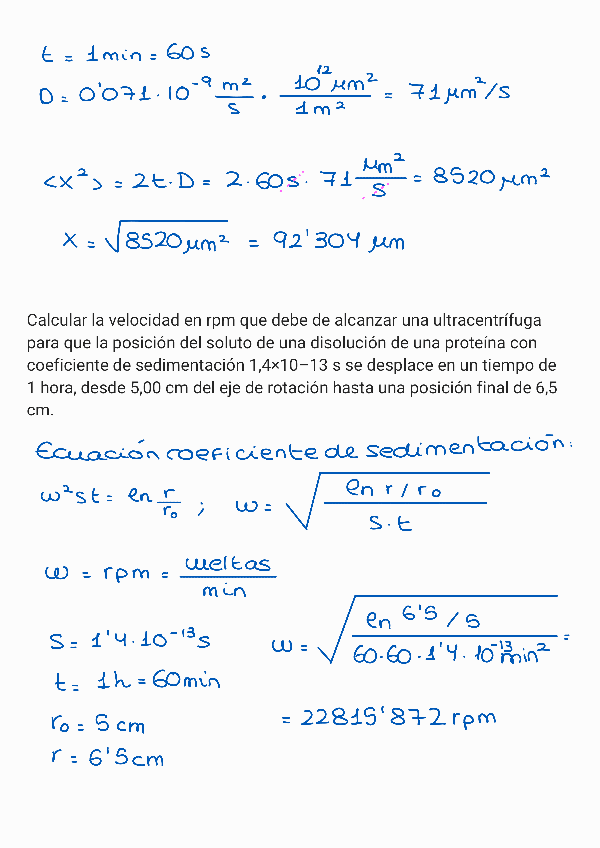 t = 1 min = 60 s
D = 0'071 · 10⁻⁹ m²/s · 10¹² μm²/1 m² = 71 μm²/s
<x²> = 2t·D = 2·60 s · 71 μm²/s = 8520 μm²
x = √8520 μm² = 92'304 μm
Calcular la velocidad en rpm que debe de alcanzar una ultracentrífuga
para que la posición del soluto de una disolución de una proteína con
coeficiente de sedimentación 1,4×10−13 s se desplace en un tiempo de
1 hora, desde 5,00 cm del eje de rotación hasta una posición final de 6,5
cm.
Ecuación coeficiente de sedimentación:
ω²st = ln r/r₀ ; ω = √(ln r/r₀ / s·t)
ω = rpm = vueltas/min
s = 1'4·10⁻¹³ s
ω = √(ln 6'5/5 / 60·60·1'4·10⁻¹³ min²) =
t = 1h = 60 min
r₀ = 5 cm
= 22815'872 rpm
r = 6'5 cm